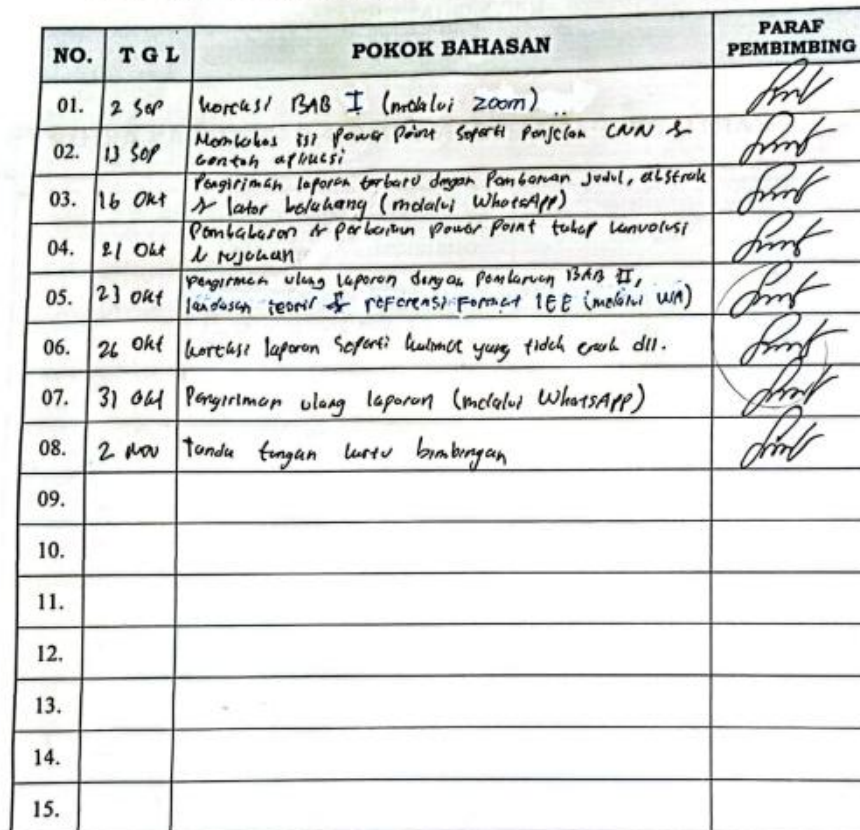 NO. TGL POKOK BAHASAN PARAF PEMBIMBING
01. 2 Sep Koreksi BAB I (melalui zoom)
02. 13 Sep Membahas isi Power Point seperti Penjelasan CNN &
contoh aplikasi
03. 16 Okt Pengiriman laporan terbaru dengan Pembaruan Judul, abstrak
& latar belakang (melalui WhatsApp)
04. 21 Okt Pembahasan & perbaikan Power Point tahap konvolusi
& rujukan
05. 23 Okt Pengiriman ulang laporan dengan Pembaruan BAB II,
landasan teori & referensi Format IEE (melalui WA)
06. 26 Okt Koreksi laporan Seperti kalimat yang tidak enak dll.
07. 31 Okt Pengiriman ulang laporan (melalui WhatsApp)
08. 2 Nov Tanda tangan kartu bimbingan
09.
10.
11.
12.
13.
14.
15.